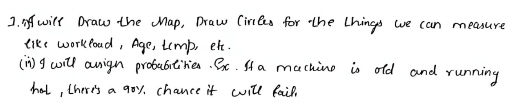 I will Draw the Map, Draw Circles for the things we can measure
like workload, Age, temp, etc.
(ii) I will assign probabilities. Ex. If a machine is old and running
hot, there's a 90% chance it will fail.